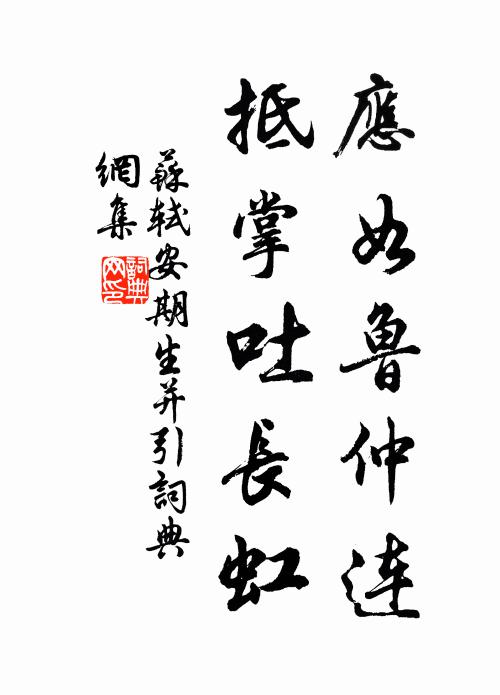 應如魯仲連
抵掌吐長虹
蘇軾安期生并引詞典
網集
詞典
网印